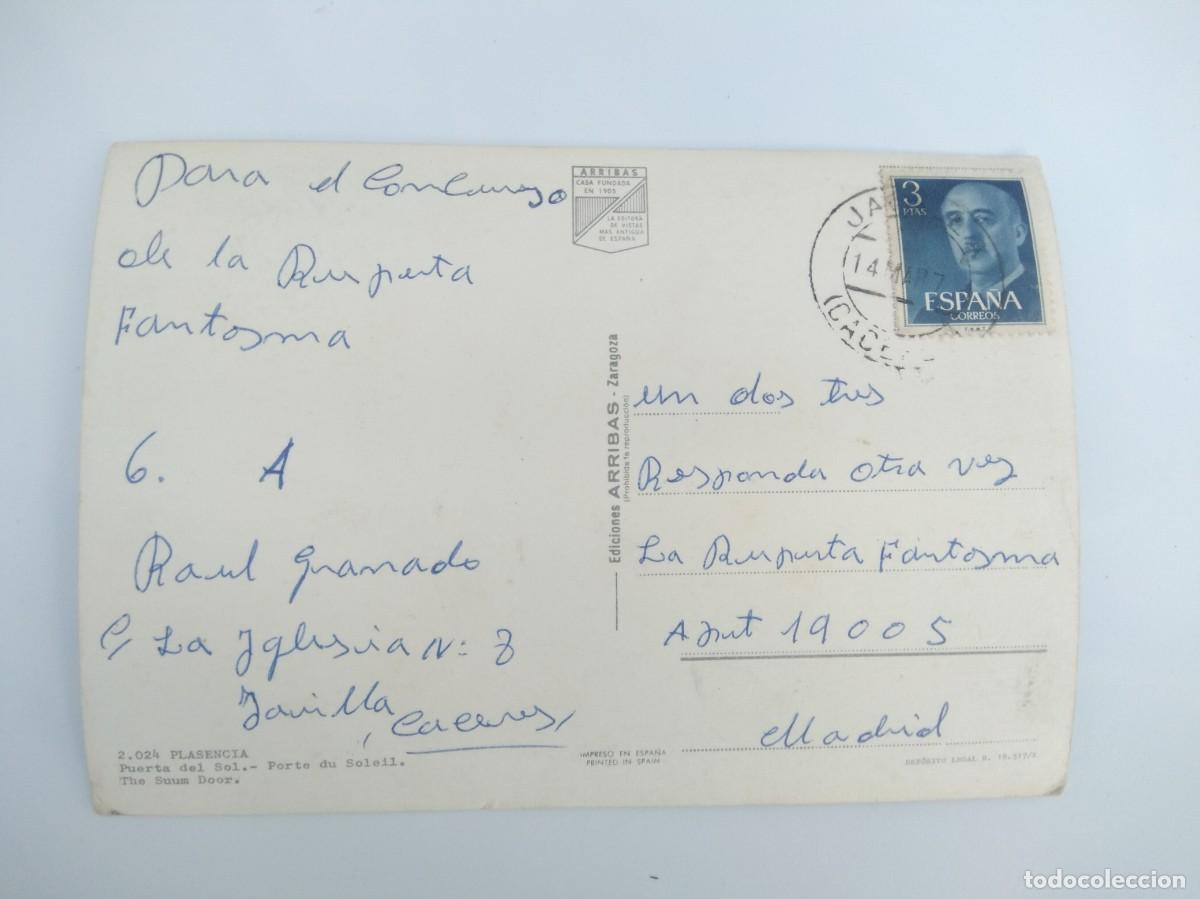 Para el Concurso
de la Ruperta
Fantasma
6. A
Raul Granado
C/ La Iglesia Nº: 8
Caceres
2.024 PLASENCIA
Puerta del Sol.- Porte du Soleil.
The Suum Door.
ARRIBAS
CASA FUNDADA
EN 1905
LA EDITORA
DE VISTAS
MAS ANTIGUA
DE ESPAÑA
Ediciones ARRIBAS - Zaragoza
(Prohibida la reproducción)
IMPRESO EN ESPAÑA
PRINTED IN SPAIN
3
PTAS
ESPAÑA
CORREOS
14 MAR 7
un dos tres
Responda otra vez
La Ruperta Fantasma
Apart 19005
Madrid
DEPÓSITO LEGAL B.
todocoleccion